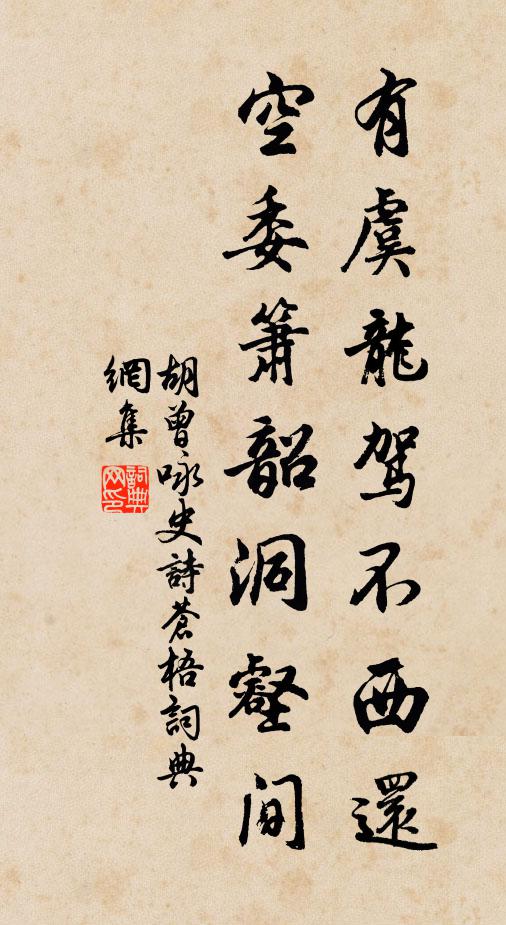 有虞龍駕不西還
空委簫韶洞壑間
胡曾咏史詩蒼梧詞典
網集
詞典
网印